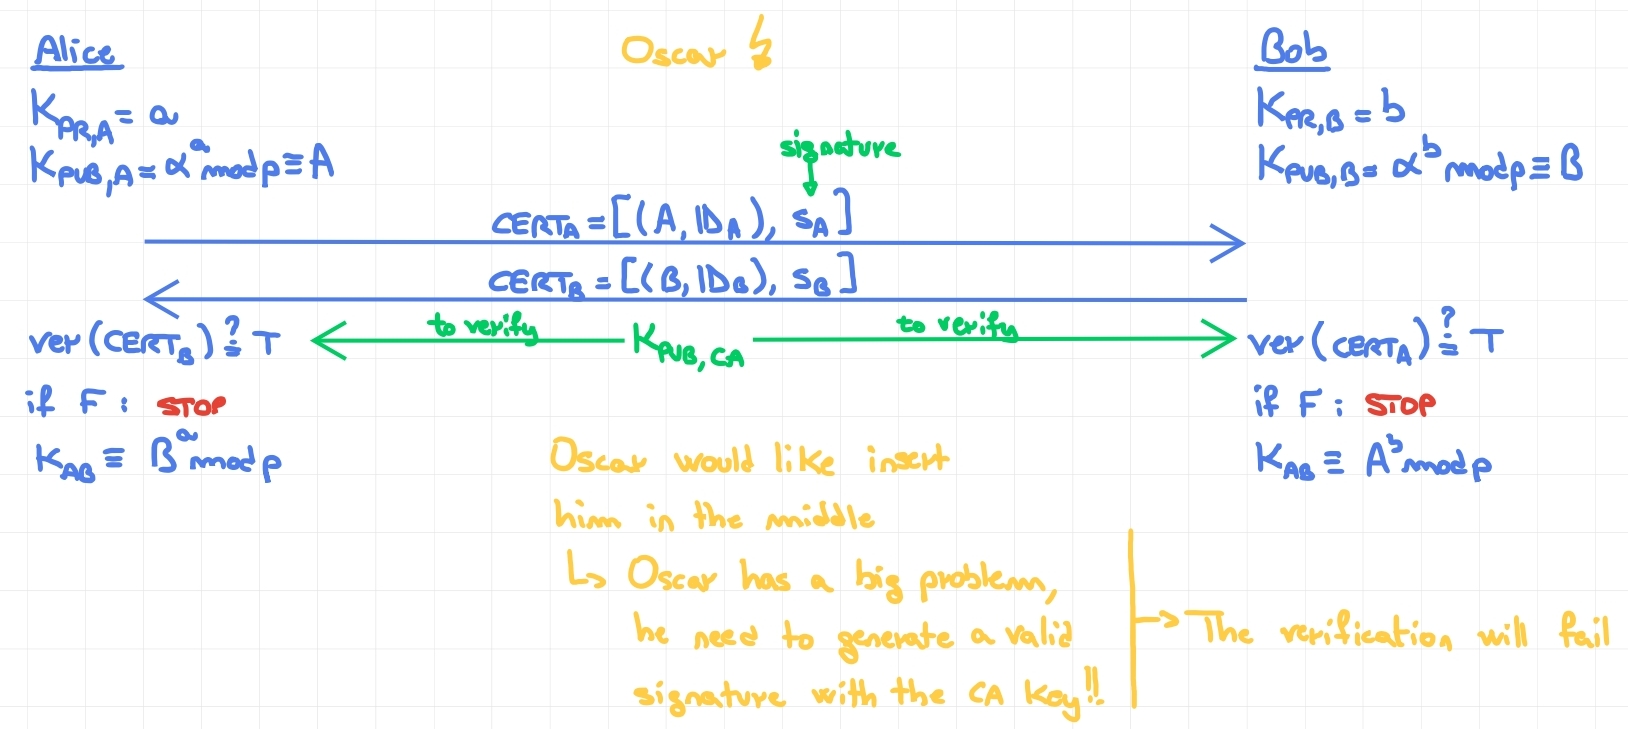 Alice
Oscar
Bob
K_PR,A = a
K_PR,B = b
K_PUB,A = α^a mod p ≡ A
signature
K_PUB,B = α^b mod p ≡ B
CERT_A = [(A, ID_A), S_A]
CERT_B = [(B, ID_B), S_B]
ver(CERT_B) ?= T
to verify
K_PUB,CA
to verify
ver(CERT_A) ?= T
if F: STOP
if F: STOP
K_AB ≡ B^a mod p
K_AB ≡ A^b mod p
Oscar would like insert
him in the middle
↳ Oscar has a big problem,
he need to generate a valid
signature with the CA key!!
→ The verification will fail